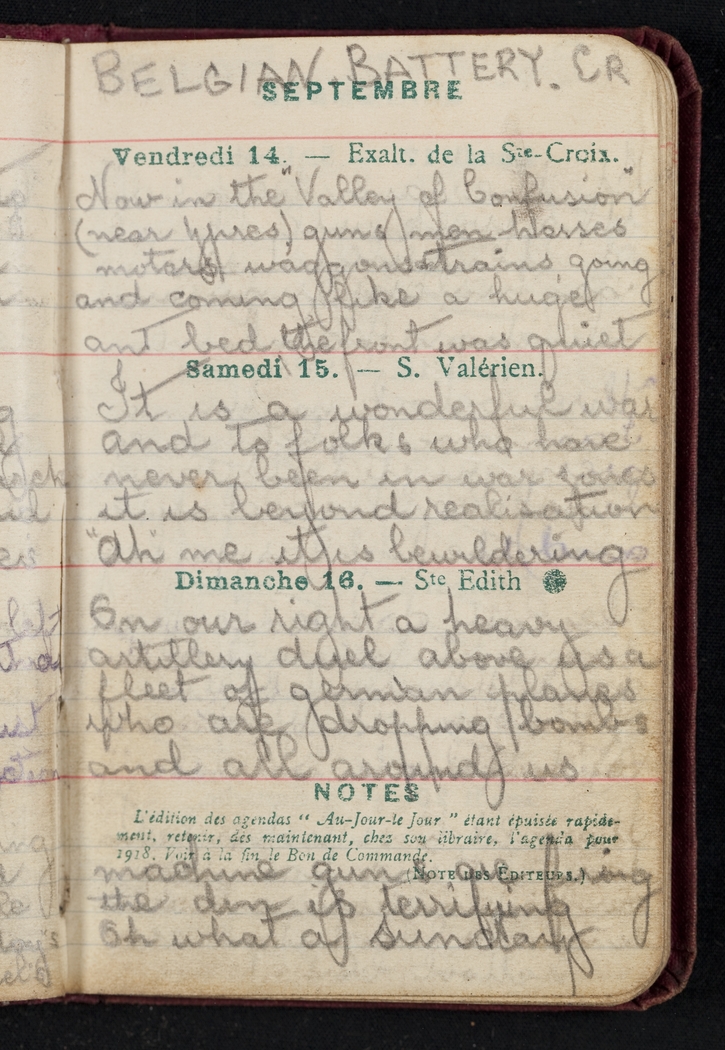 BELGIAN BATTERY. CR
SEPTEMBRE
Vendredi 14. — Exalt. de la Ste-Croix.
Now in the "Valley of Confusion"
(near Ypres) guns men horses
motors waggons trains going
and coming like a huge
ant bed the front was quiet
Samedi 15. — S. Valérien.
It is a wonderful war
and to folks who have
never been in war zones
it is beyond realisation
"Ah" me it is bewildering
Dimanche 16. — Ste Edith
On our right a heavy
artillery duel above us a
fleet of german planes
who are dropping bombs
and all around us
NOTES
L'édition des agendas "Au-Jour-le Jour" étant épuisée rapide-
ment, retenir, dès maintenant, chez son libraire, l'agenda pour
1918. Voir à la fin le Bon de Commande.
(NOTE DES EDITEURS.)
machine guns are firing
the din is terrifying
Oh what a sunday